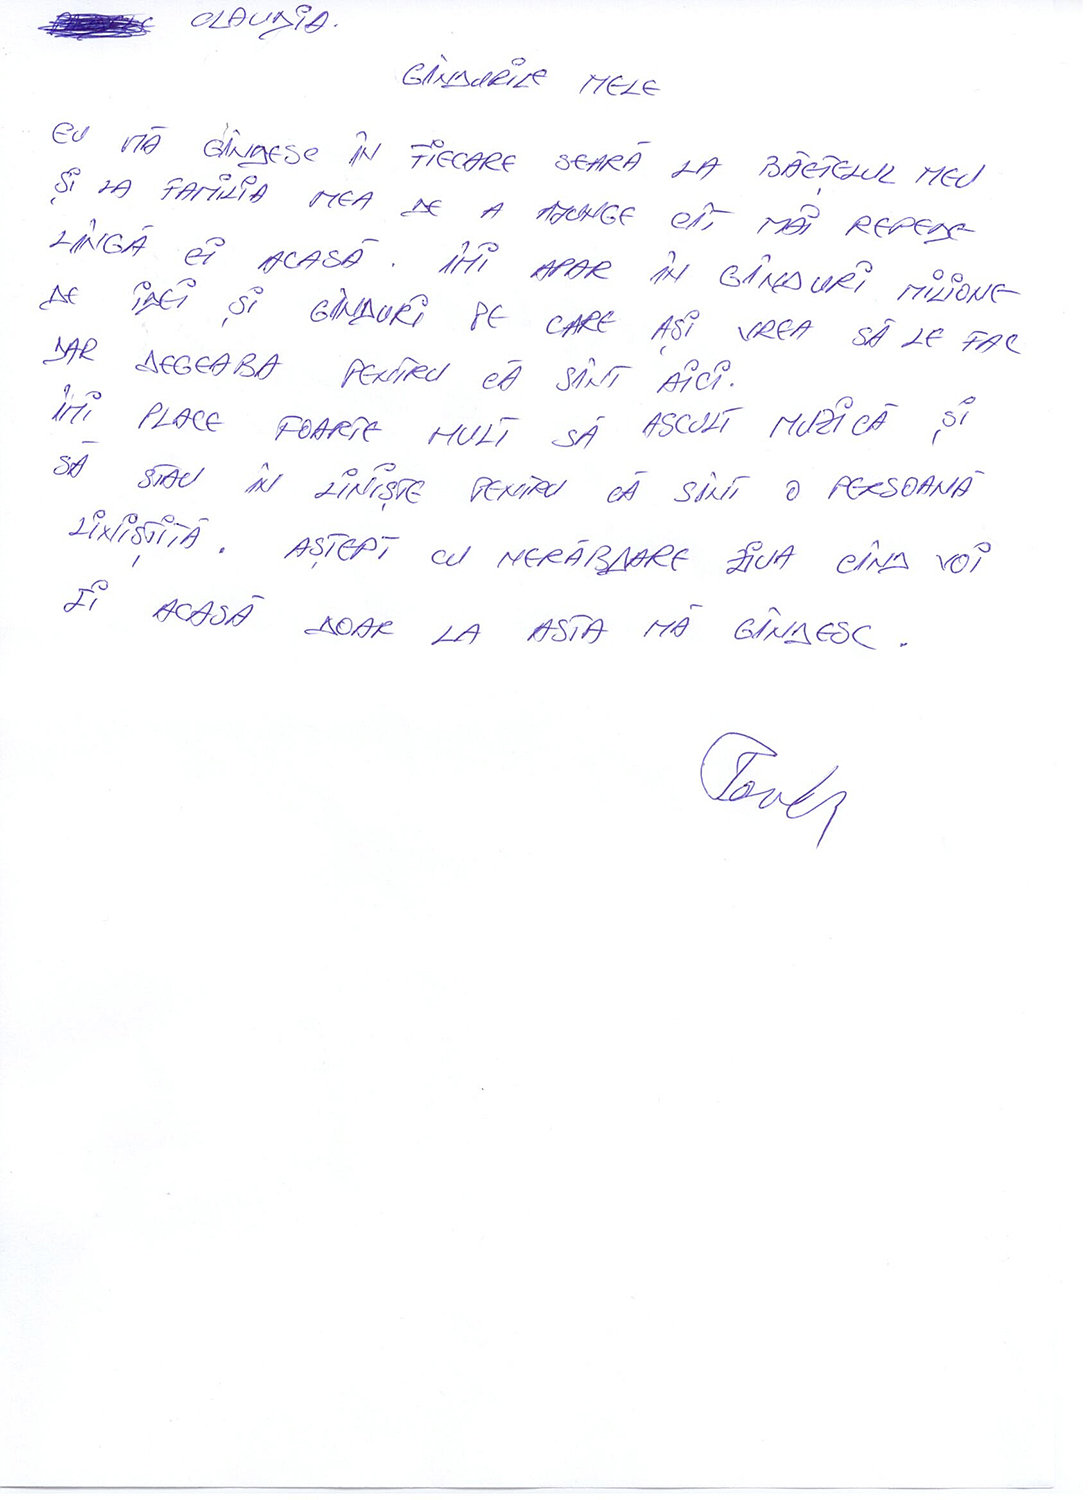 CLAUDIA.
GÎNDURILE MELE
EU MĂ GÎNDESC ÎN FIECARE SEARĂ LA BĂEȚELUL MEU
ȘI LA FAMILIA MEA DE A AJUNGE CÎT MAI REPEDE
LÎNGĂ EI ACASĂ. ÎMI APAR ÎN GÎNDURI MILIONE
DE IDEI ȘI GÎNDURI PE CARE AȘI VREA SĂ LE FAC
DAR DEGEABA PENTRU CĂ SÎNT AICI.
ÎMI PLACE FOARTE MULT SĂ ASCULT MUZICĂ ȘI
SĂ STAU ÎN LINIȘTE PENTRU CĂ SÎNT O PERSOANĂ
LINIȘTITĂ. AȘTEPT CU NERĂBDARE ZIUA CÎND VOI
FI ACASĂ DOAR LA ASTA MĂ GÎNDESC.